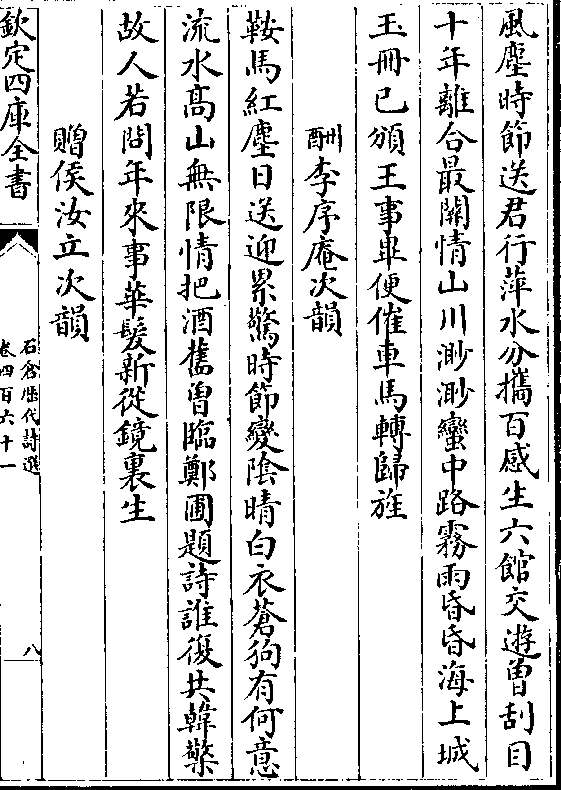 風塵時節送君行萍水分攜百感生六館交遊曽刮目
十年離合最關情山川渺渺蠻中路霧雨昏昏海上城
玉冊已頒王事畢便催車馬轉歸旌
酬李序庵次韻
鞍馬紅塵日送迎累驚時節變陰晴白衣蒼狗有何意
流水髙山無限情把酒舊曽臨鄭圃題詩誰復共韓檠
故人若問年來事華髮新從鏡裏生
贈侯汝立次韻
欽定四庫全書
石倉歴代詩選
卷四百六十一
八